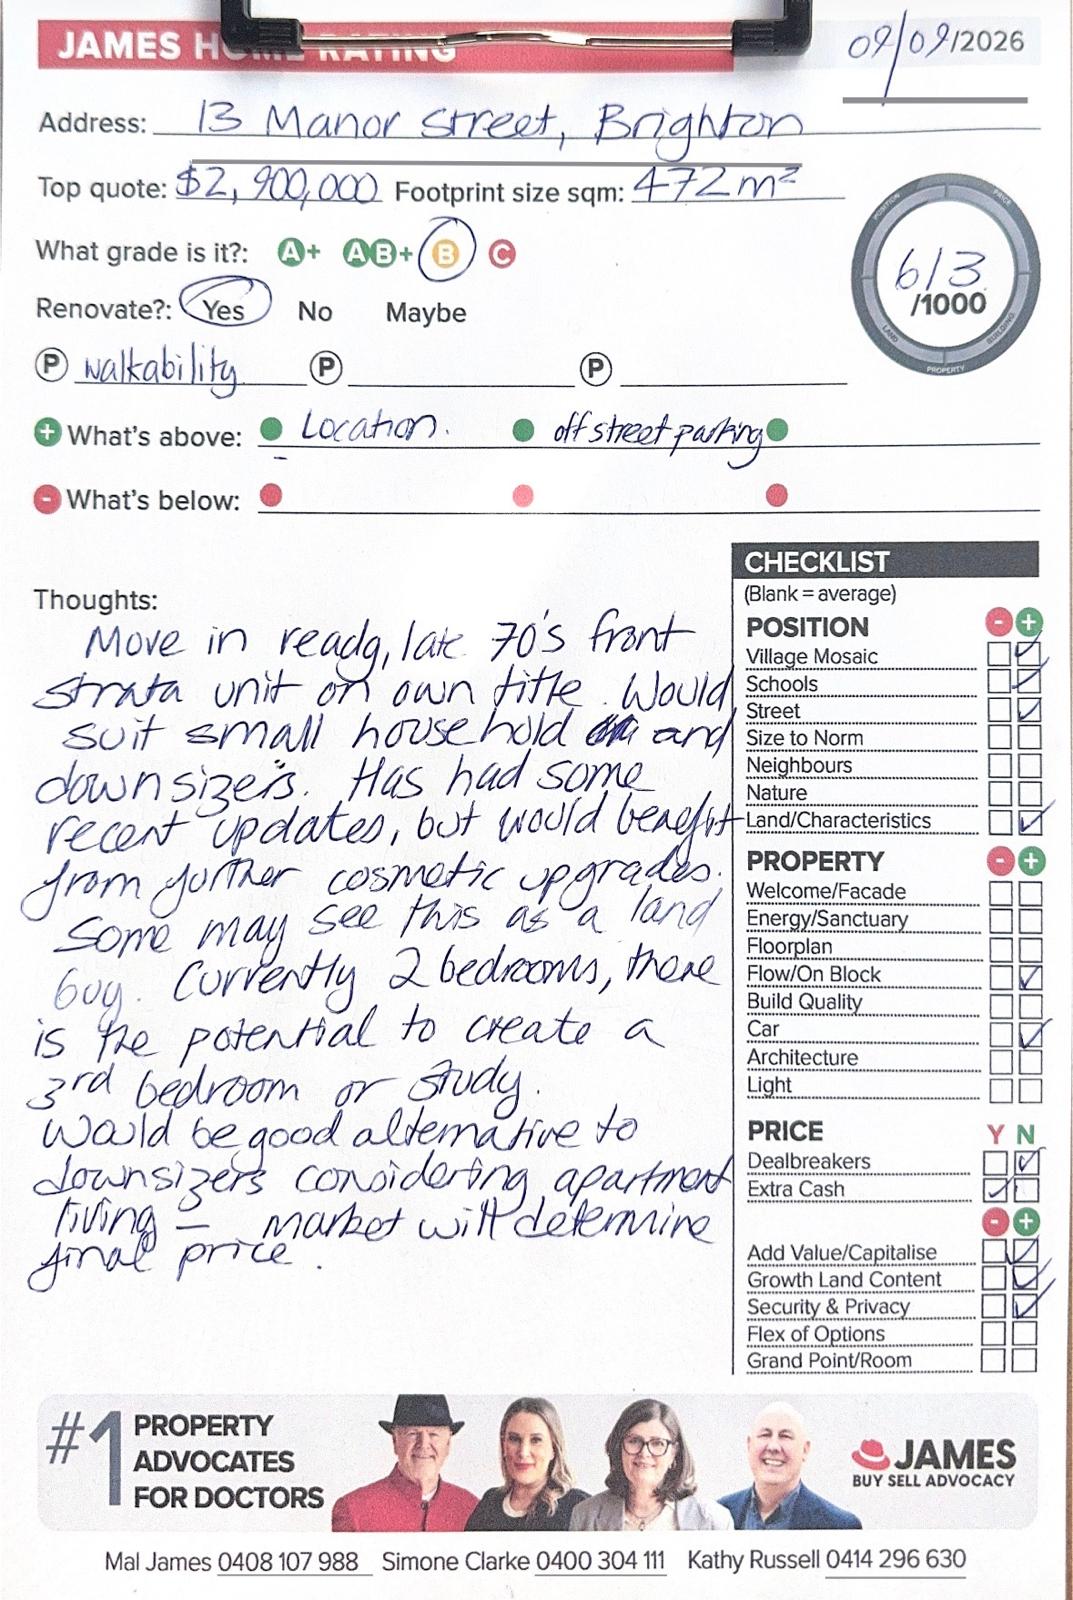 JAMES HOME RATING
09/09/2026
Address: 13 Manor Street, Brighton
Top quote: $2,900,000 Footprint size sqm: 472m²
What grade is it?: A+ AB+ B C
613
/1000
POSITION PRICE BUILDING PROPERTY LAND
Renovate?: Yes No Maybe
P walkability P P
+ What's above: Location. off street parking
- What's below:
Thoughts:
Move in ready, late 70's front
strata unit on own title. Would
suit small household and
downsizers. Has had some
recent updates, but would benefit
from further cosmetic upgrades.
Some may see this as a land
buy. Currently 2 bedrooms, there
is the potential to create a
3rd bedroom or study.
Would be good alternative to
downsizers considering apartment
living - market will determine
final price.
CHECKLIST
(Blank = average)
POSITION - +
Village Mosaic
Schools
Street
Size to Norm
Neighbours
Nature
Land/Characteristics
PROPERTY - +
Welcome/Facade
Energy/Sanctuary
Floorplan
Flow/On Block
Build Quality
Car
Architecture
Light
PRICE Y N
Dealbreakers
Extra Cash
- +
Add Value/Capitalise
Growth Land Content
Security & Privacy
Flex of Options
Grand Point/Room
#1 PROPERTY
ADVOCATES
FOR DOCTORS
JAMES
BUY SELL ADVOCACY
Mal James 0408 107 988 Simone Clarke 0400 304 111 Kathy Russell 0414 296 630